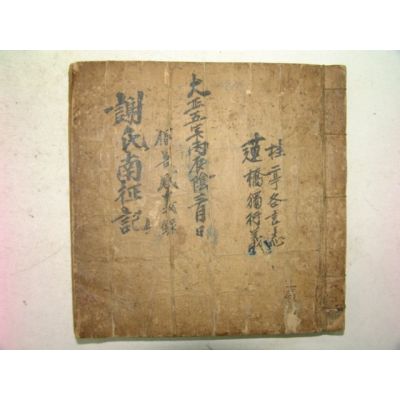 桂亭各言志
蓮橋獨行義
大正五年丙辰陰二月日
謝氏南征記